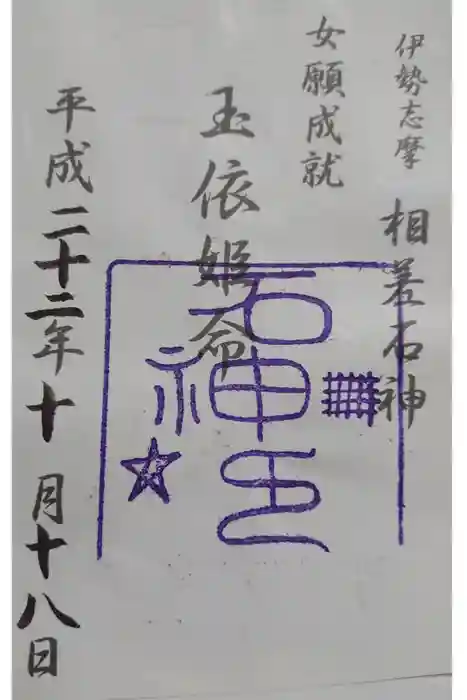 伊勢志摩
相差石神
女願成就
玉依姫命
石神印
平成二十二年十月十八日